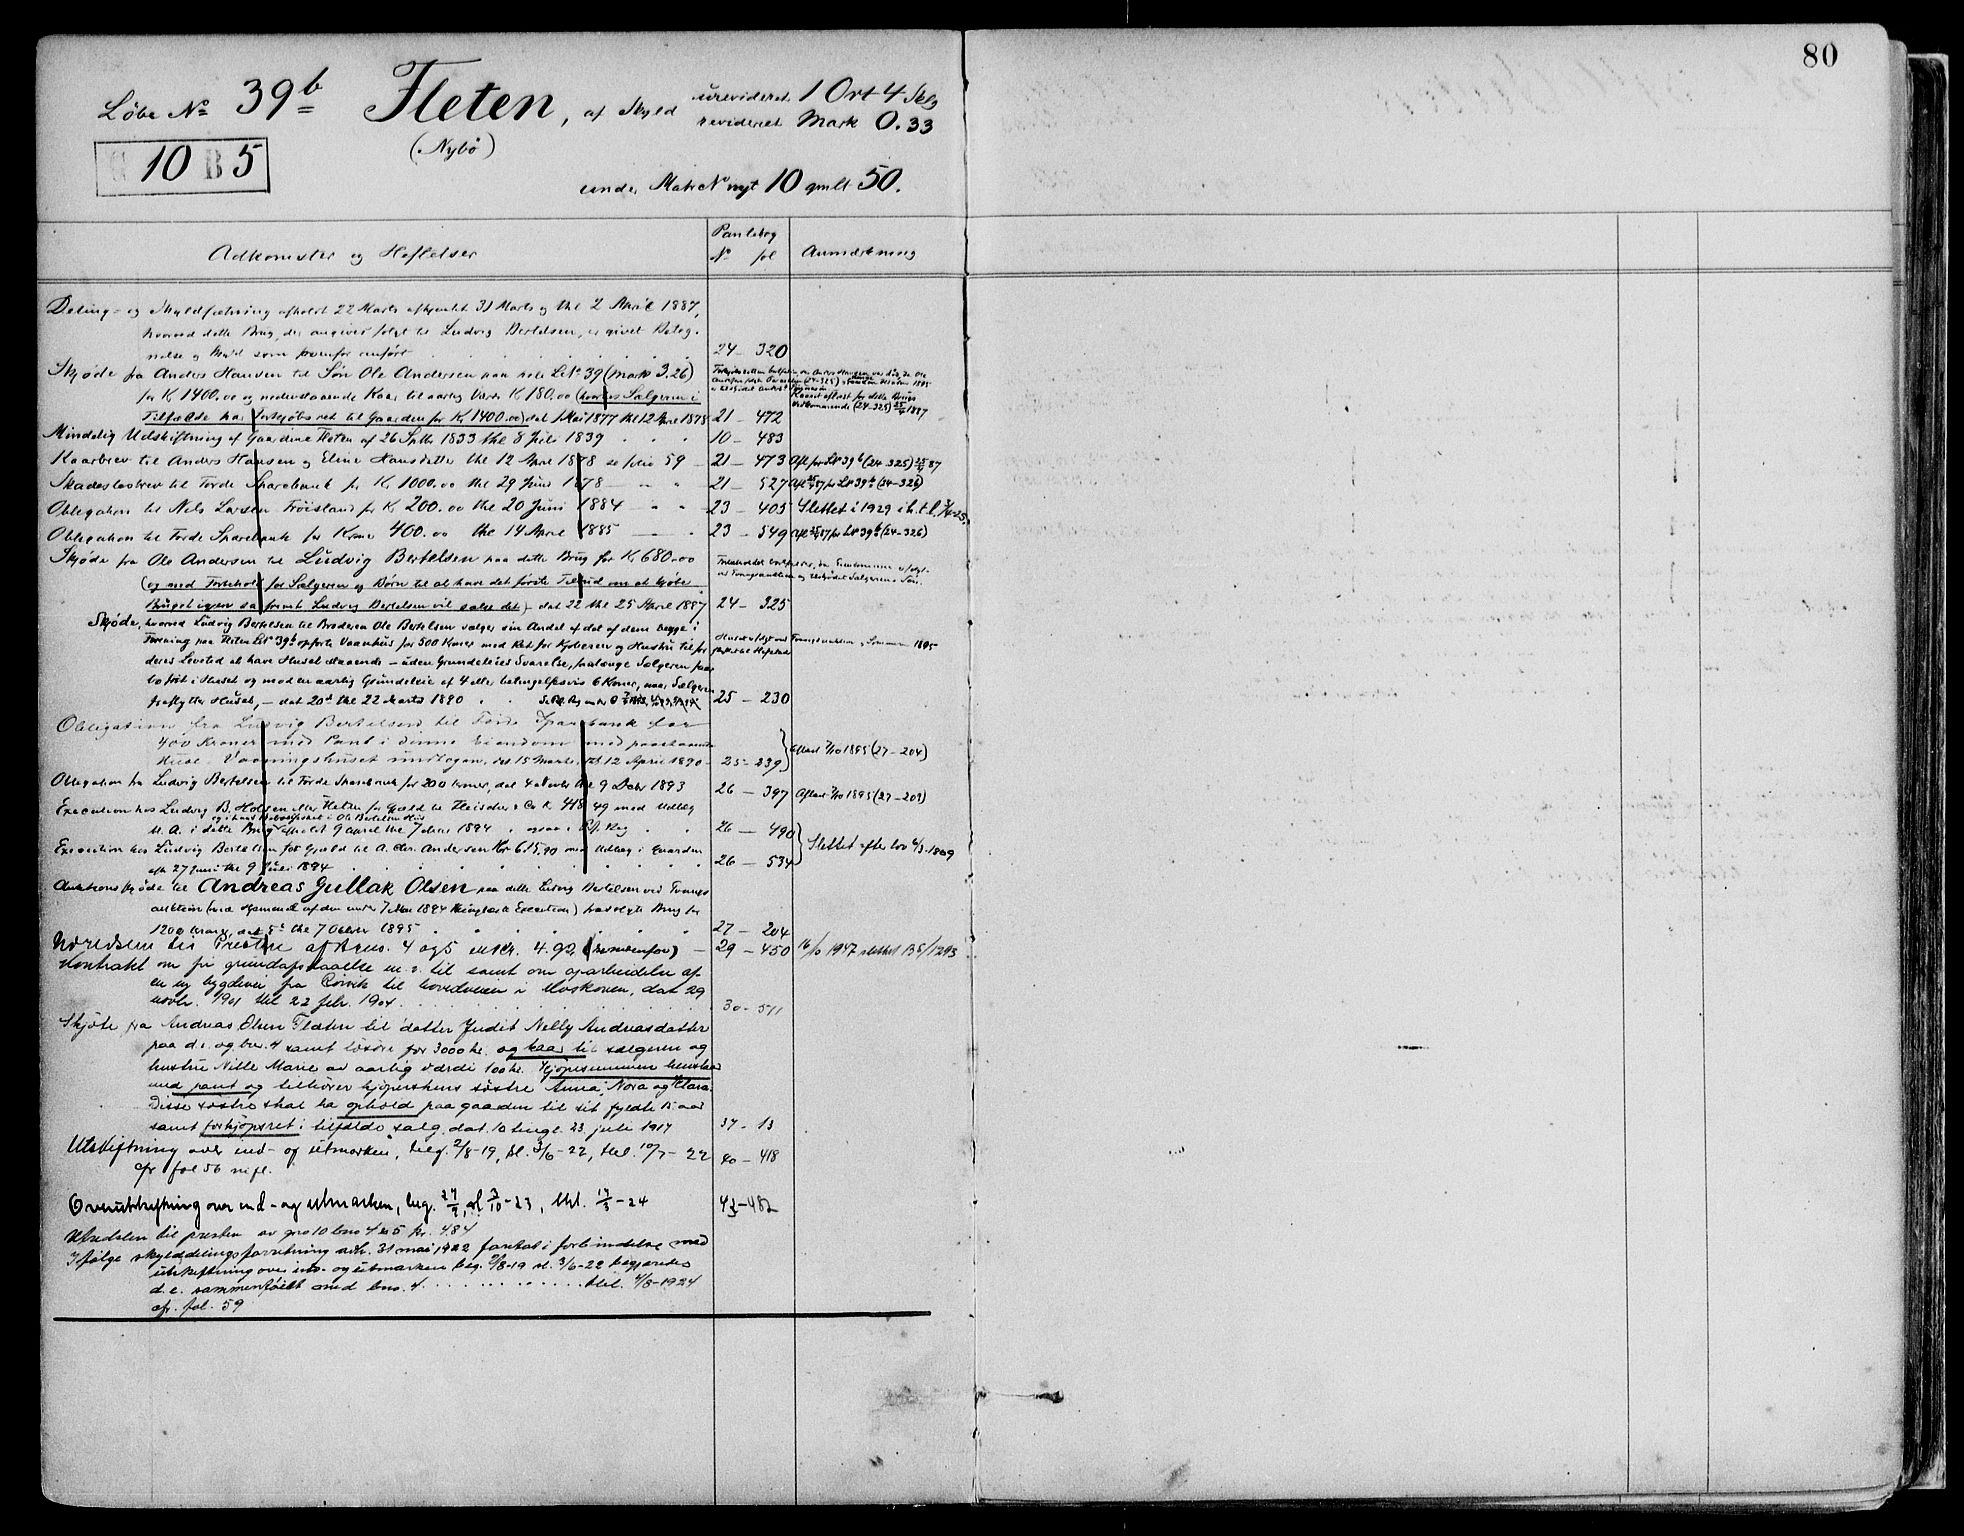 80
Løbe No 39b Fleten, af Skyld urevideret 1 Ort 4 Skg
revideret Mark 0.33
(Nybø)
G 10 B 5
under Matr No nyt 10 gmlt 50.
Adkomster og Heftelser Pantebog Anmærkning
No fol
Deling- og Skyldsætning afholdt 22 Marts afhjemlet 31 Marts og thl 2 April 1887,
hvorved dette Brug, der angives solgt til Ludvig Bertelsen, er givet Beteg-
nelse og Skyld som ovenfor anført 24 - 320
Skjøde fra Anders Hansen til Søn Ole Andersen paa hele LNo 39 (mark 3.26)
for Kr 1400.00 og nedenstaaende Kaar til aarlig Værdi Kr 180.00 (hvorhos Sælgeren i
Tilfælde har Forkjøbsret til Gaarden for Kr 1400.00) dat 1 Mai 1877 thl 12 April 1878 21 - 472
Kaaret aflæst for dette Brugs
Vedkommende (24-325) 25/4 1887
Mindelig Udskiftning af Gaardene Fleten af 26 Septbr 1833 thl 8 Juli 1839 10 - 483
Kaarbrev til Anders Hansen og Eline Hansdatter thl 12 April 1878 se folio 59 21 - 473 Afl for LNo 39b (24-325) 25/4 87
Skadesløsbrev til Førde Sparebank for Kr 1000.00 thl 29 Juni 1878 21 - 527 Afl 25/4 87 for LNo 39b (24-326)
Obligation til Nels Larsen Frøisland for Kr 200.00 thl 20 Juni 1884 23 - 405 Slettet i 1929 i h.t.l.
Obligation til Førde Sparebank for Kroner 400.00 thl 14 April 1885 23 - 549 Afl 25/4 87 for LNo 39b (24-326)
Skjøde fra Ole Andersen til Ludvig Bertelsen paa dette Brug for Kr 680.00
(og med Forbehold for Sælgeren og Børn til at have det første Tilbud om at kjøbe
Bruget igjen saafremt Ludvig Bertelsen vil sælge det) - dat 22 thl 25 April 1887 24 - 325
Skjøde, hvorved Ludvig Bertelsen til Broderen Ole Bertelsen sælger sin Andel af det af dem begge i
Forening paa Fleten LNo 39b opførte Vaanhus for 500 Kroner med Ret for Kjøberen og Hustru til for
deres Levetid at have Huset staaende - uden Grundeleies Svarelse, saalænge Sælgeren paa
bo født i Huset og mod en aarlig Grundeleie af 4 eller betingelsesvis 6 Kroner, naar Sælgeren
fraflytter Huset, - dat 20de thl 22 Marts 1890 25 - 230
Obligation fra Ludvig Bertelsen til Førde Sparebank for
400 Kroner med Pant i denne Eiendom med paastaaende
Huse, Vaaningshuset undtagen, dat 15 Marts, thl 12 April 1890 25 - 239 Aflæst 7/10 1895 (27-204)
Obligation fra Ludvig Bertelsen til Førde Sparebank for 200 Kroner, dat 4 Novbr thl 9 Decbr 1893 26 - 397 Aflæst 7/10 1895 (27-203)
Execution hos Ludvig B. Holsen eller Fleten for Gjæld til Fleischer & Co Kr 418.49 med Udlæg
bl. A. i dette Brug afholdt 9 april thl 7 Mai 1894 26 - 490
Execution hos Ludvig Bertelsen for Gjæld til A. Chr. Andersen Kr 615.90 med Udlæg i Gaarden
afh 27 Juni thl 9 Juli 1894 26 - 534 Slettet efter lov
Auktionsskjøde til Andreas Gullak Olsen paa dette Ludvig Bertelsen ved Tvangs
auktion (ved Hjemmel af den under 7 Mai 1894 thinglæste Execution) fravolgte Brug for
1200 Kroner, dat 5te thl 7 Octbr 1895 27 - 204
Utredsem til Presten af Bruns. 4 og 5 er Kr. 4.92 (se nedenfor) 29 - 450 16/10 1947 slettet B 5/1293
Kontrakt om fri grundafstaaelse m.v. til samt om oparbeidelse af
en ny bygdevei fra til hovedveien i Moskoven, dat 29
novbr. 1901 thl 22 febr. 1904 30 - 511
Skjøte fra Andreas Olsen Flæten til datter Judit Nelly Andreasdatter
paa d.e. og bnr. 4 samt løsøre for 3000 kr. og kaar til sælgeren og
hustru Nille Marie av aarlig værdi 100 kr. Kjøpesummen henstaar
med pant og tilhører kjøperskens søstre Anna, Nora og Klara.
Disse søstre skal ha ophold paa gaarden til sit fyldte 15 aar
samt forkjøpsret i tilfælde salg, dat. 10 tingl. 23. juli 1917 37 - 13
Utskiftning over ind- og utmarken, beg. 2/8-19, sl. 3/6-22, thl. 10/7-22 40 - 418
cfr fol 56 n.fl.
Overutskiftning over ind- og utmarken, beg. sl 3/10-23, thl. 17/3-24 42 - 482
Utredslen til presten av gno 10 bno 4 & 5 kr. 4.84
Ifølge skylddelingsforretning avh. 31 mai 1922 foretat i forbindelse med
utskiftning over inn- og utmarken beg. 2/8-19 sl. 3/6-22 begjæres
d.e. sammenføiet med bno. 4 thl. 4/8-1924
cfr. fol. 59